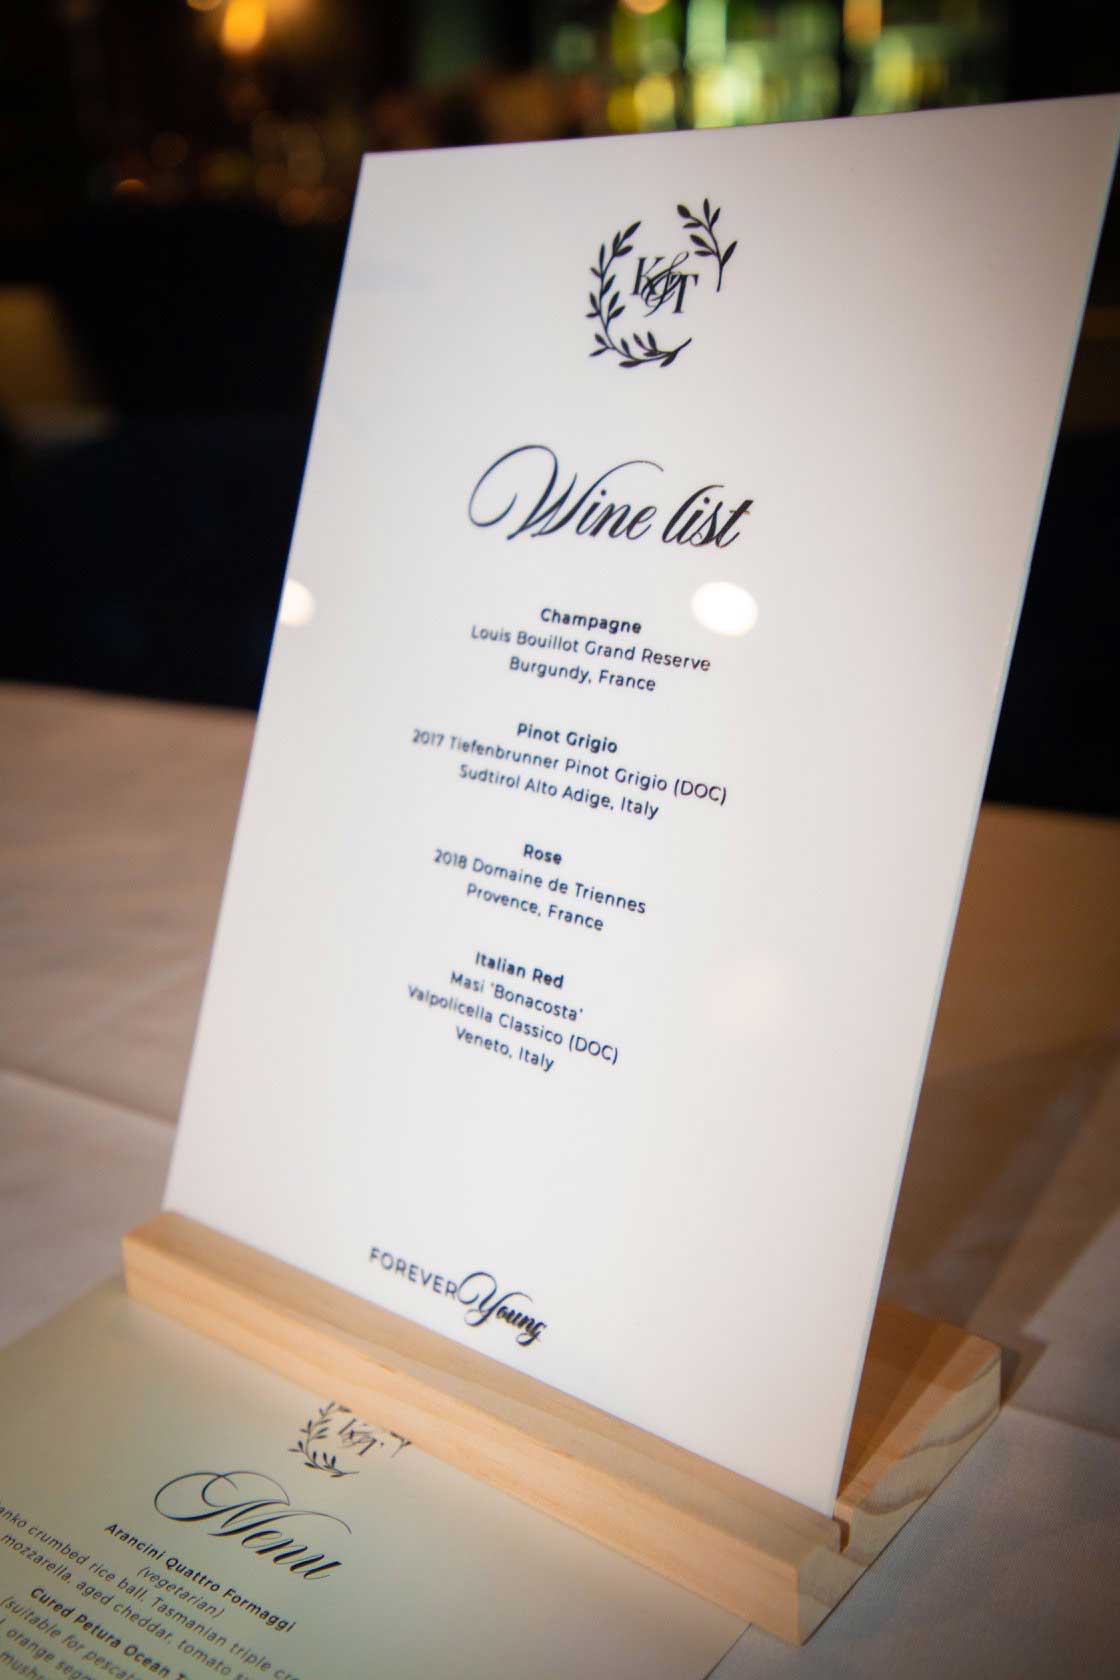 K&T
Wine list
Champagne
Louis Bouillot Grand Reserve
Burgundy, France
Pinot Grigio
2017 Tiefenbrunner Pinot Grigio (DOC)
Sudtirol Alto Adige, Italy
Rose
2018 Domaine de Triennes
Provence, France
Italian Red
Masi 'Bonacosta'
Valpolicella Classico (DOC)
Veneto, Italy
FOREVER Young
K&T
Menu
Arancini Quattro Formaggi
(vegetarian)
crumbed rice ball, Tasmanian triple
mozzarella, aged cheddar, tomato
Cured Petura Ocean
(suitable for
orange